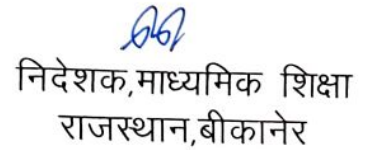 निदेशक,माध्यमिक शिक्षा
राजस्थान,बीकानेर